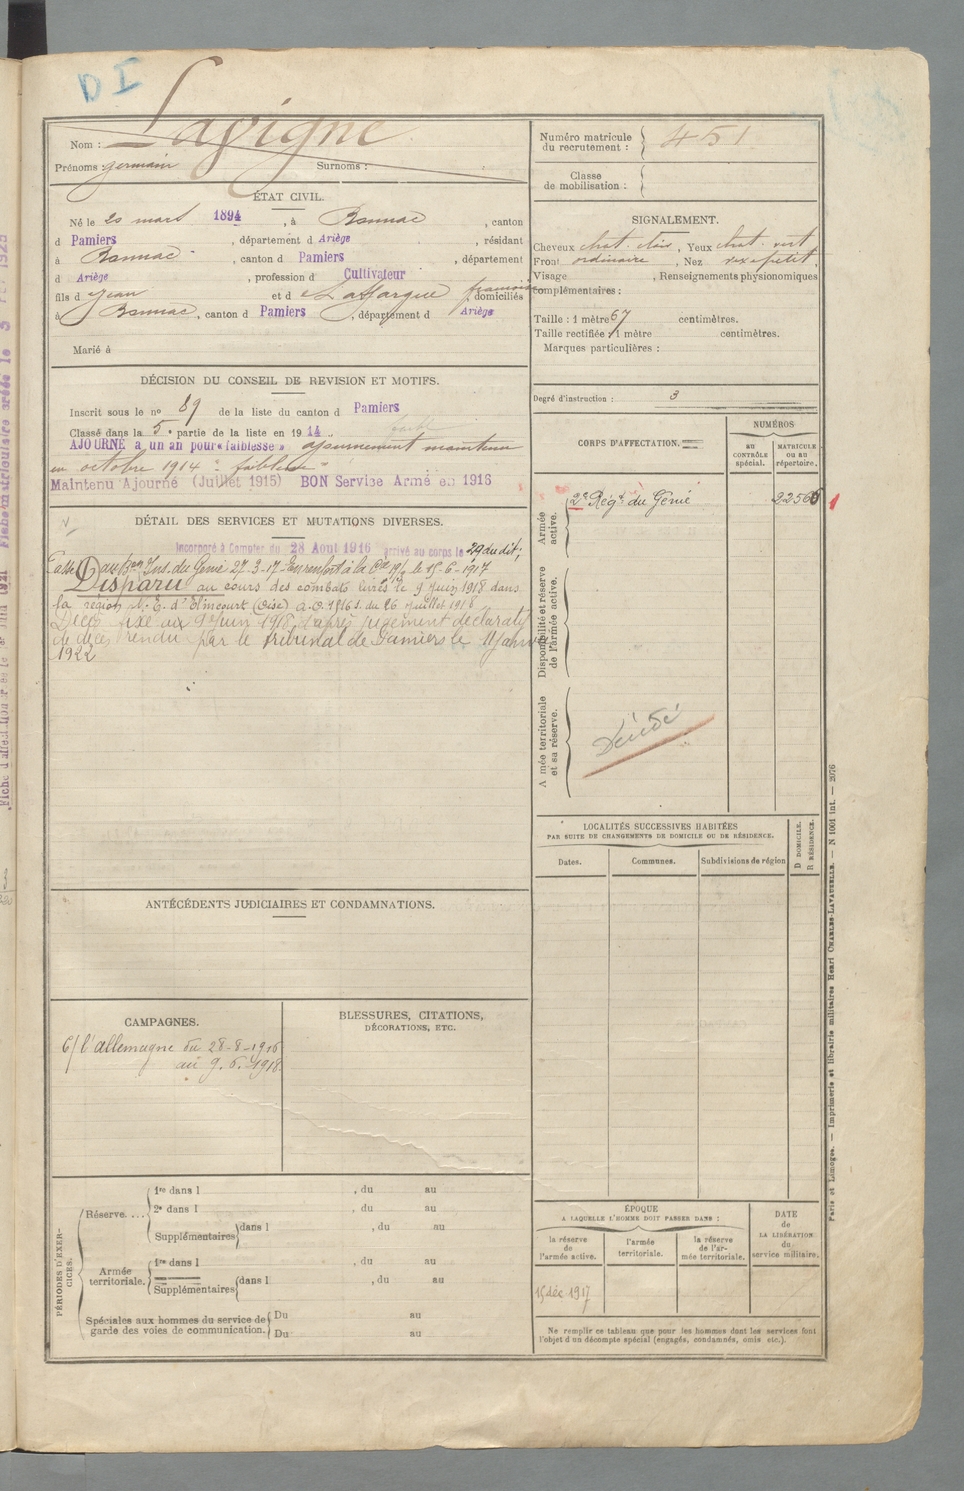 D I
Lavigne
Nom :
Prénoms : Germain Surnoms :
ÉTAT CIVIL.
Né le 20 mars 1894, à Bonnac, canton
d Pamiers, département d Ariège, résidant
à Bonnac, canton d Pamiers, département
d Ariège, profession d Cultivateur
fils d Jean et d Laffargue françoise, domiciliés
à Bonnac, canton d Pamiers, département d Ariège
Marié à
DÉCISION DU CONSEIL DE REVISION ET MOTIFS.
Inscrit sous le nº 89 de la liste du canton d Pamiers
Classé dans la 5e partie de la liste en 1914
AJOURNÉ à un an pour « faiblesse » ajournement maintenu
en octobre 1914 : faiblesse "
Maintenu Ajourné (Juillet 1915) BON Service Armé en 1916
DÉTAIL DES SERVICES ET MUTATIONS DIVERSES.
Incorporé à Compter du 28 Aout 1916 arrivé au corps le 29 du dit;
Passé au Bon Ins. du Génie 27-3-17. En renfort à la Cie 19/ le 15-6-1917
Disparu au cours des combats livrés le 9 Juin 1918 dans
la région N. E. d'Elincourt (Oise) A.O. 1816 S. du 26 Juillet 1918
Décès fixé au 9 Juin 1918 d'après jugement déclaratif
de décès rendu par le tribunal de Pamiers le 11 Janvier
1922
ANTÉCÉDENTS JUDICIAIRES ET CONDAMNATIONS.
CAMPAGNES.
C/ l'allemagne du 28-8-1916
au 9.6.1918.
BLESSURES, CITATIONS,
DÉCORATIONS, ETC.
PÉRIODES D'EXERCICES.
Réserve....
1re dans l , du au
2e dans l , du au
Supplémentaires dans l , du au
Armée territoriale.
1re dans l , du au
Supplémentaires dans l , du au
Spéciales aux hommes du service de garde des voies de communication.
Du au
Du au
Numéro matricule du recrutement : 451
Classe de mobilisation :
SIGNALEMENT.
Cheveux chat. clair, Yeux chat. vert
Front ordinaire, Nez petit.
Visage , Renseignements physionomiques
complémentaires :
Taille : 1 mètre 67 centimètres.
Taille rectifiée : 1 mètre centimètres.
Marques particulières :
Degré d'instruction : 3
CORPS D'AFFECTATION.
NUMÉROS
AU CONTRÔLE spécial.
MATRICULE ou au répertoire.
Armée active.
2e Régt du Génie
Disponibilité et réserve de l'armée active.
Armée territoriale et sa réserve.
Décédé
LOCALITÉS SUCCESSIVES HABITÉES
PAR SUITE DE CHANGEMENTS DE DOMICILE OU DE RÉSIDENCE.
Dates. Communes. Subdivisions de région
D DOMICILE.
R RÉSIDENCE.
ÉPOQUE
A LAQUELLE L'HOMME DOIT PASSER DANS :
la réserve de l'armée active.
l'armée territoriale.
la réserve de l'armée territoriale.
DATE de LA LIBÉRATION du service militaire.
15 déc 1917
Ne remplir ce tableau que pour les hommes dont les services font
l'objet d'un décompte spécial (engagés, condamnés, omis etc.).
Paris et Limoges. — Imprimerie et librairie militaires Henri CHARLES-LAVAUZELLE. — N 1001 int. — 2076